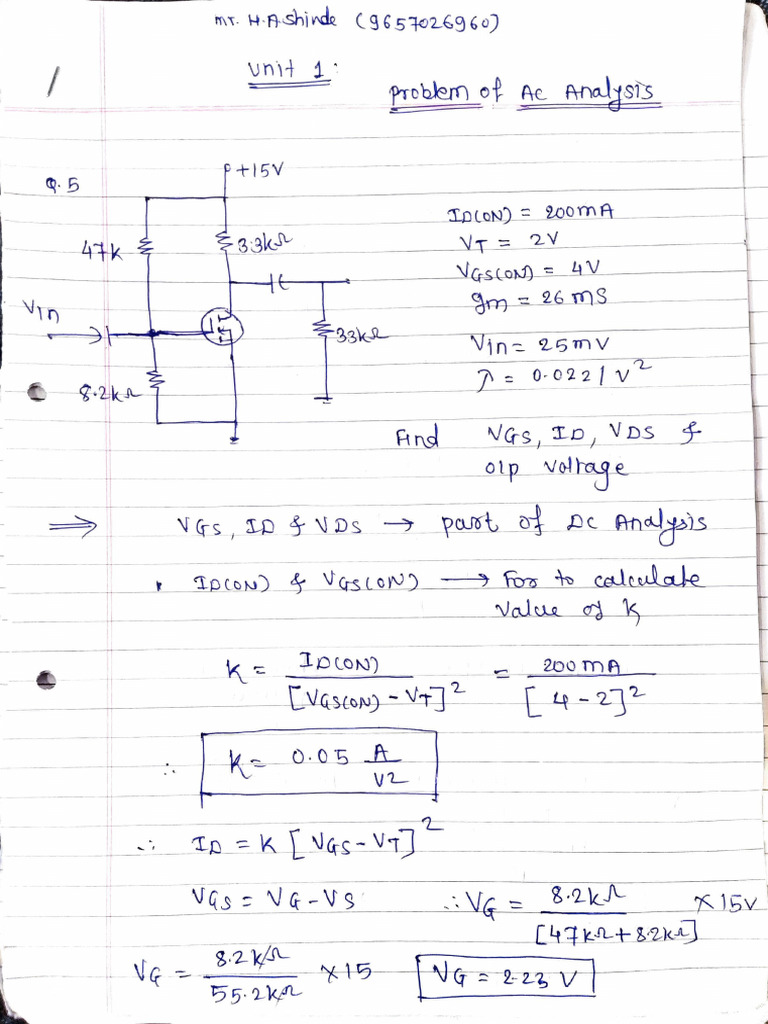 Mr. H.A Shinde (9657026960)
Unit 1:
Problem of AC Analysis
Q.5
+15V
47k
3.3kΩ
Vin
33kΩ
8.2kΩ
ID(ON) = 200mA
VT = 2V
VGS(ON) = 4V
gm = 26 mS
Vin = 25mv
λ = 0.022 1/V²
Find VGS, ID, VDS &
o/p voltage
⇒ VGS, ID & VDS → part of DC Analysis
• ID(ON) & VGS(ON) → For to calculate
Value of K
K = ID(ON) / [VGS(ON) - VT]² = 200mA / [4-2]²
∴ K = 0.05 A/V2
∴ ID = K [VGS - VT]²
VGS = VG - VS ∴ VG = 8.2kΩ / [47kΩ + 8.2kΩ] × 15V
VG = 8.2kΩ / 55.2kΩ × 15 VG = 2.23 V